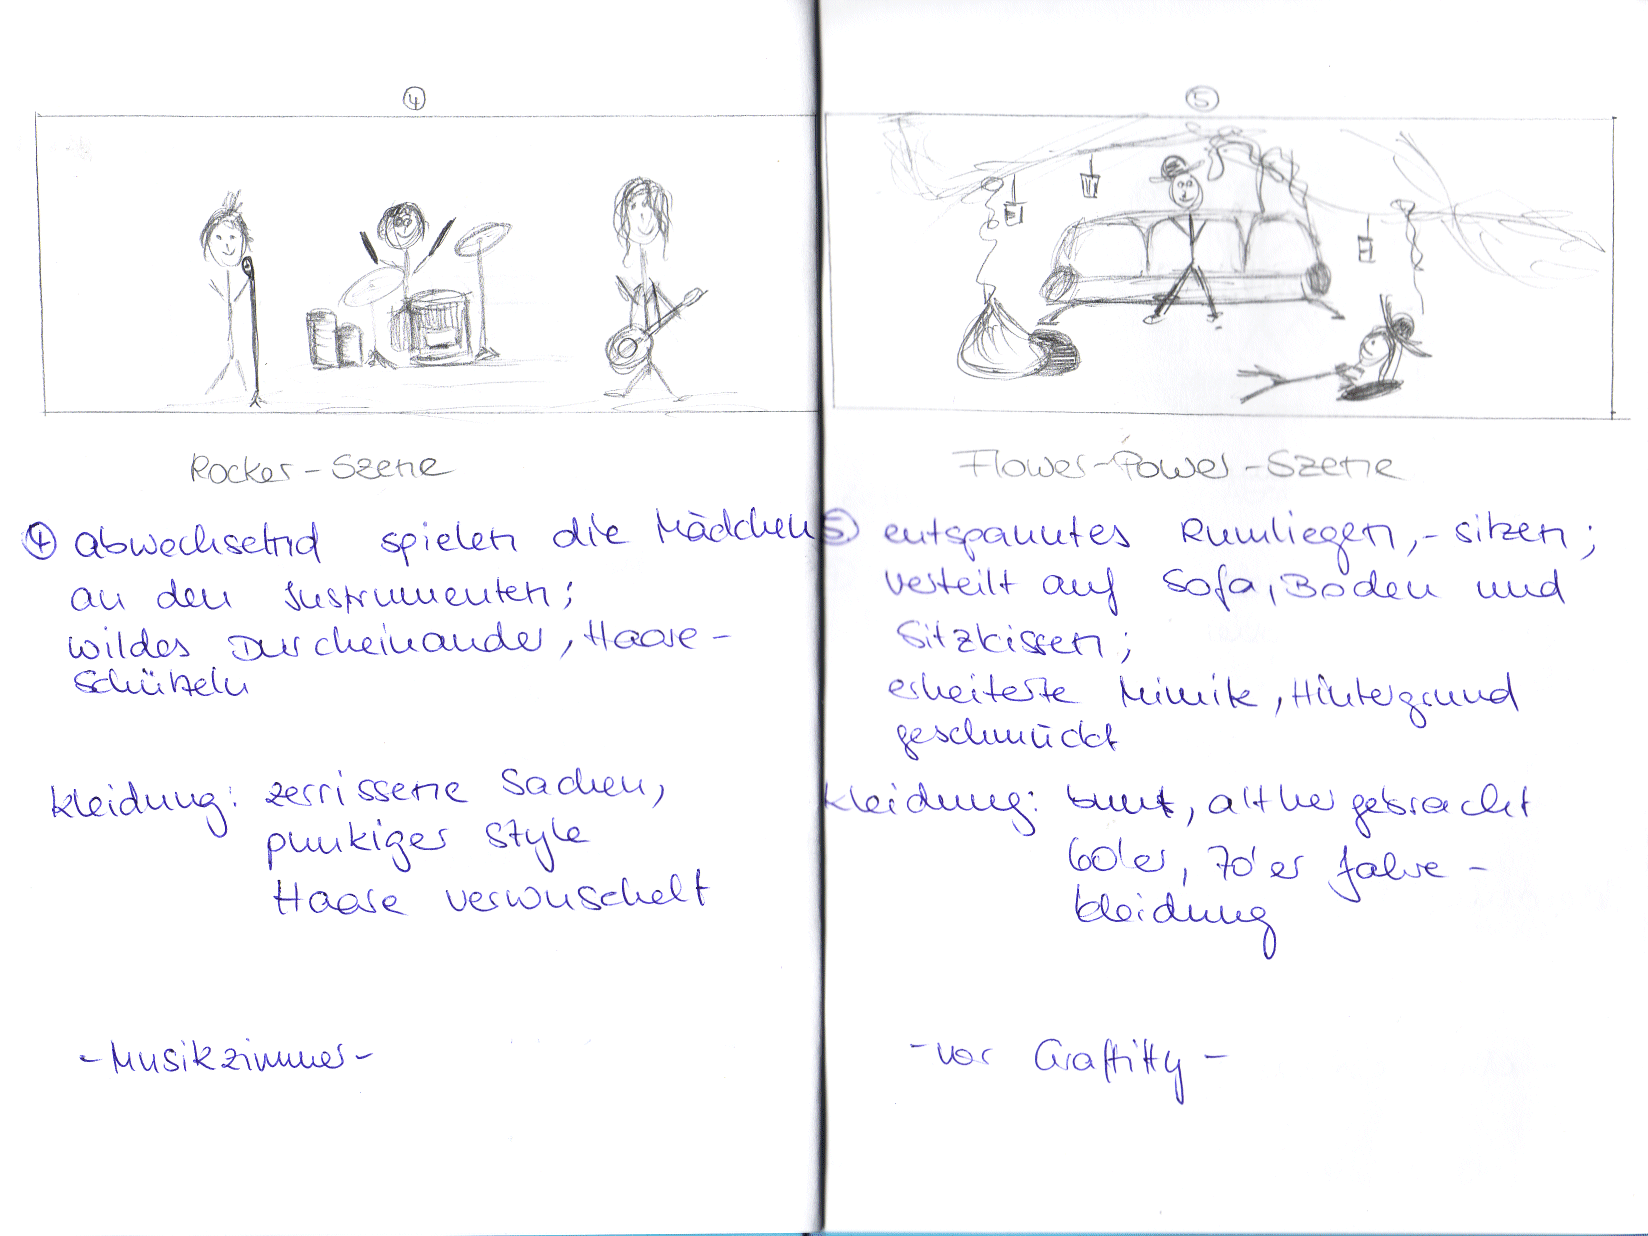 ④
Rocker-Szene
④ abwechselnd spielen die Mädchen
an den Instrumenten;
wildes Durcheinander, Haare-
schütteln
Kleidung: zerrissene Sachen,
punkiger Style
Haare verwuschelt
- Musikzimmer -
⑤
Flower-Power-Szene
⑤ entspanntes Rumliegen, - sitzen;
verteilt auf Sofa, Boden und
Sitzkissen;
erheiterte Mimik, Hintergrund
geschmückt
Kleidung: bunt, althergebracht
60'er, 70'er Jahre -
kleidung
- vor Graffitty -